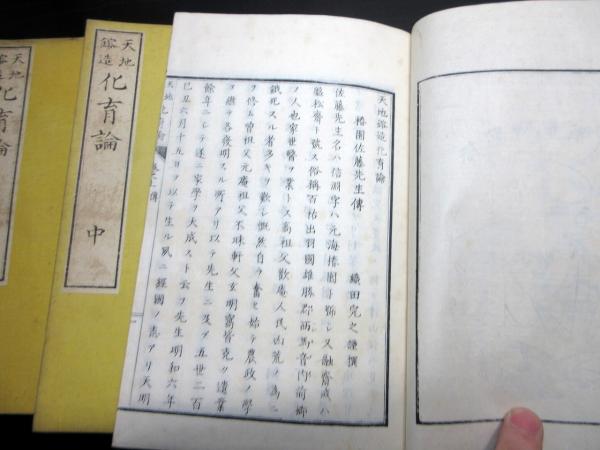 天地鎔造化育論
椿園佐藤先生傳
織田完之謹撰
佐藤先生名ハ信淵字ハ元海椿園ト號シ又融齋或ハ
松齋ト號ス俗稱百祐出羽國雄勝郡西馬音内前郷
ノ人也家世醫ヲ業トス高祖父歡庵人民凶荒ノ為ニ
餓死スル者多キヲ歎シ慨然自ラ奮テ始テ農政ノ學
ヲ修ム曾祖父元庵祖父不昧軒父玄明窩皆克ク遺業
ヲ繼テ各發明スル所アリ以テ先生ニ及フ五世二百
餘年ニシテ遂ニ家學ヲ大成スト云フ先生明和六年
己丑六月十五日ヲ以テ生ル夙ニ經國ノ志アリ天明
天地
鎔造
化育論
中
天地
鎔造
化育論